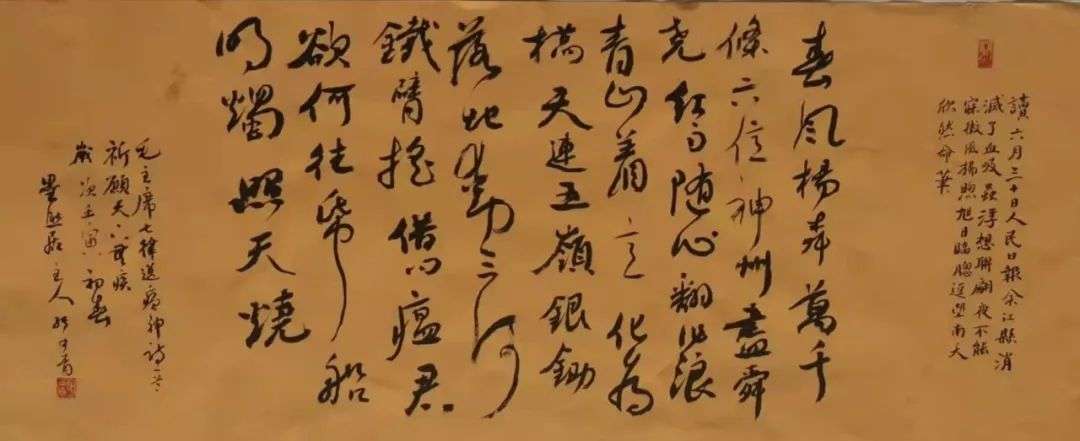 讀六月三十日人民日報余江縣消
滅了血吸蟲浮想聯翩夜不能
寐微風拂煦旭日臨窗遥望南天
欣然命筆
春風楊柳萬千
條六億神州盡舜
堯紅雨随心翻作浪
青山着意化為
橋天連五嶺銀鋤
落地動三河
鐵臂摇借问瘟君
欲何往紙船
明燭照天燒
毛主席七律送瘟神詩一首
祈願天下無疾
歲次壬寅初春
居主人